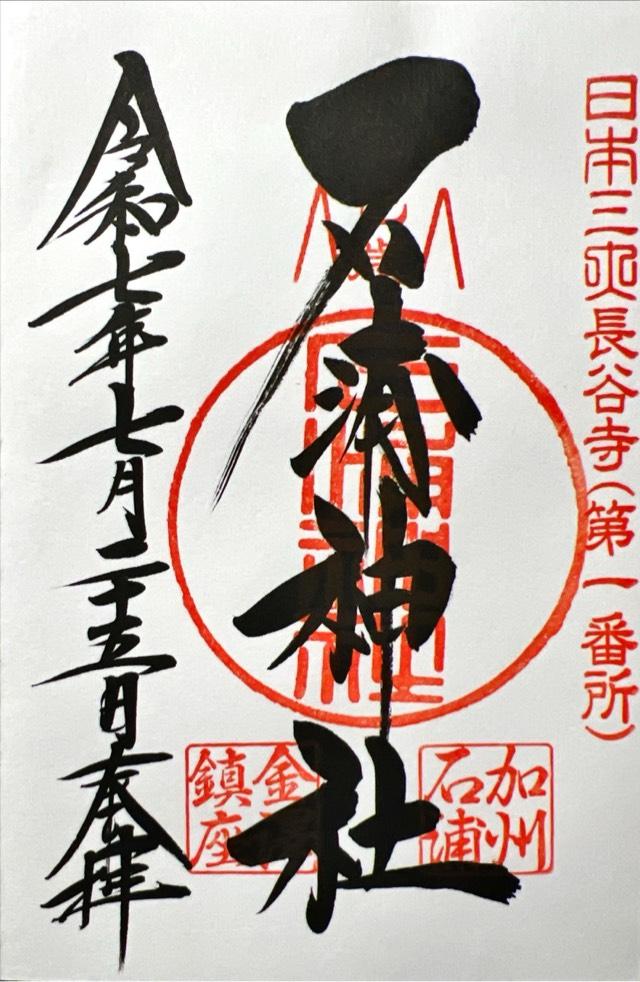 日本三大長谷寺(第一番所)
石浦神社
加州
石浦
金沢
鎮座
令和七年七月二十五日奉拝